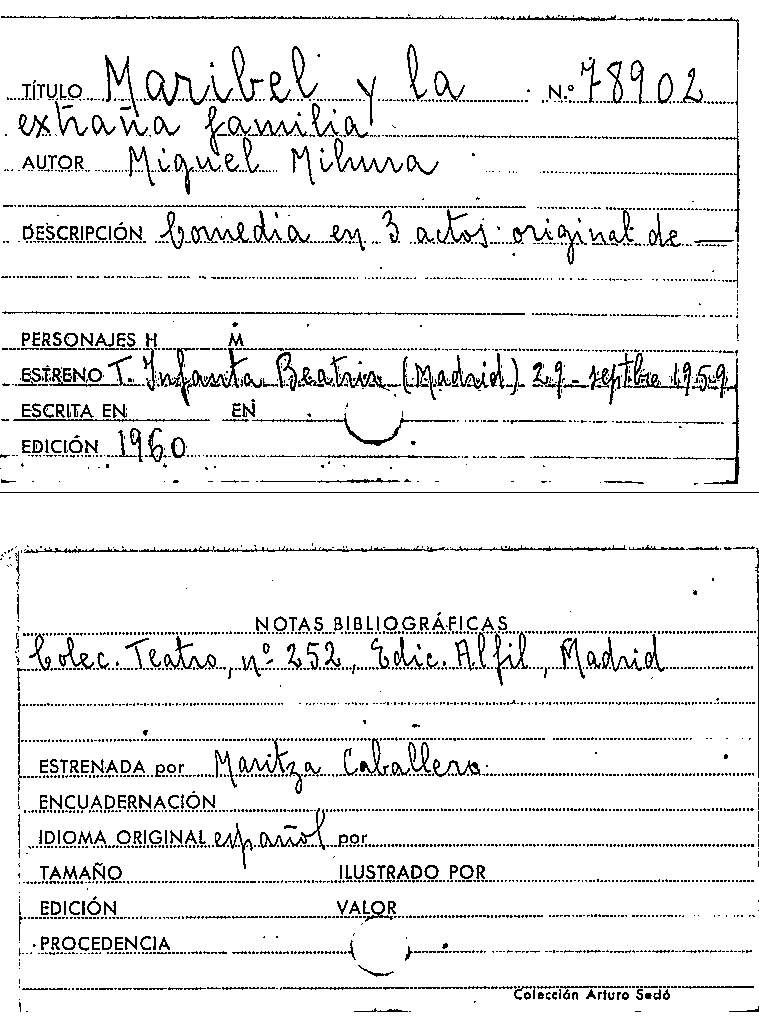 TÍTULO Maribel y la N.º 78902
extraña familia
AUTOR Miguel Mihura
DESCRIPCIÓN Comedia en 3 actos original de —
PERSONAJES H M
ESTRENO T. Infanta Beatriz (Madrid) 29 - septbre 1959
ESCRITA EN EN
EDICIÓN 1960
NOTAS BIBLIOGRÁFICAS
Colec. Teatro, nº 252, Edic. Alfil, Madrid
ESTRENADA por Maritza Caballero
ENCUADERNACIÓN
IDIOMA ORIGINAL español por
TAMAÑO ILUSTRADO POR
EDICIÓN VALOR
PROCEDENCIA
Colección Arturo Sedó